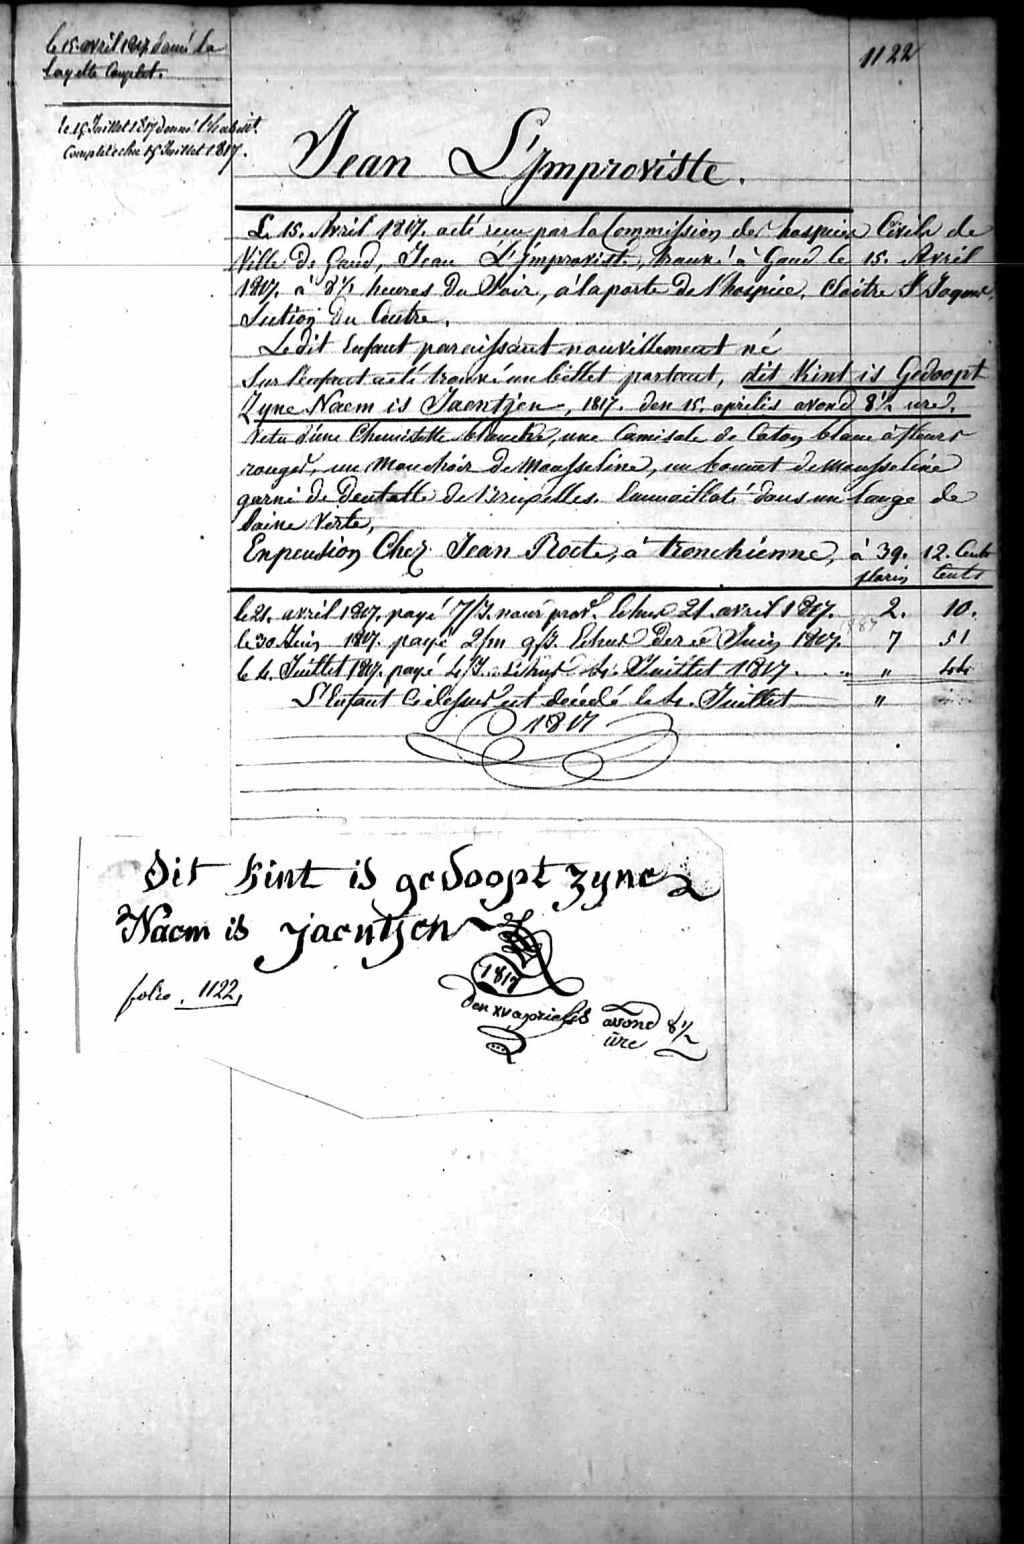 le 15. avril 1817. donné la
layette Complet.
le 15 Juillet 1817 donné l'habist.
Complet echu 15 Juillet 1817.
1122
Jean L'Improviste.
Le 15. Avril 1817. a été recu par la Commission des hospices Civils de
Ville de Gand, Jean L'Improviste, trouvé à Gand le 15. Avril
1817. à 8½ heures du Soir, à la porte de l'hospice, Cloitre St Jaques,
Section du Centre.
Ledit Enfant paroissant nouvellement né
Sur l'enfant a été trouvé un billet portant, dit Kint is Gedoopt
Zyne Naem is Jaentjen, 1817. den 15. aprilis avond 8½ ure.
Vetu d'une Chemisette blanche, une Camisole de Coton blanc à fleurs
rouges, un Mouchoir de Mousseline, un bonnet de Mousseline
garni de Dentelle de Bruxelles. Emmailloté dans un lange de
laine Verte.
En pension Chez Jean Rocte, à tronchienne, à 39. 12. Cents
florins Cents
le 21. avril 1817. payé 7/J. nour prov.e Echus 21. avril 1817. 2. 10.
le 30 Juin 1817. payé 2/m 9/J. Echus der de Juin 1817. 7 51
le 4. Juillet 1817. payé 4/J. Echus 4. Juillet 1817. . . . " 44
L'Enfant Ci dessus est décédé le 4. Juillet "
1817
Dit kint is gedoopt zyne
Naem is jaentjen
1817
folio. 1122,
den xv aprielis avond 8½
ure